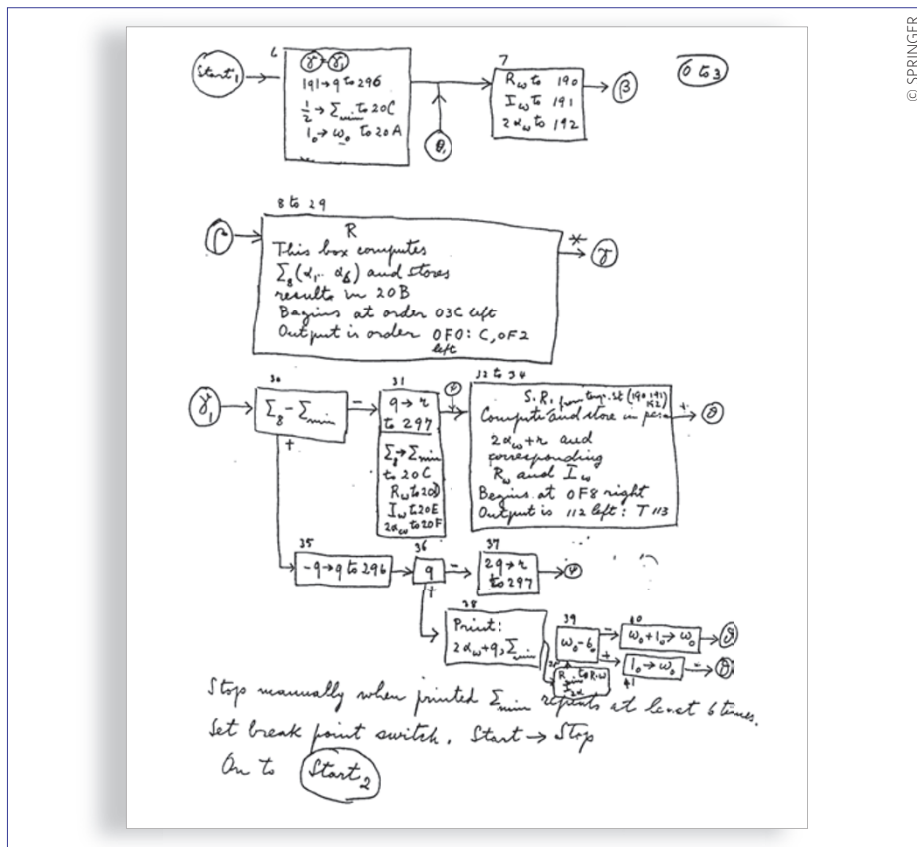 © SPRINGER
Start₁
6
γ = γ₁
191 → q to 296
½ → Σmin to 20C
1₀ → ω₀ to 20A
θ₁
7
Rω to 190
Iω to 191
2αω to 192
β
0 to 3
8 to 29
R
This box computes
Σ₈(α₁.. α₆) and stores
results in 20B
Begins at order 03C left
Output is order 0F0: C, 0F2
left
γ
γ₁
30
Σ₈ - Σmin
-
+
31
q → r
to 297
Σ₈ → Σmin
to 20C
Rω to 20D
Iω to 20E
2αω to 20F
32 to 34
S.R. from temp. st (190, 191
192)
Compute and store in
2αω + r and
corresponding
Rω and Iω
Begins at 0F8 right
Output is 112 left: T 113
+
35
-q → q to 296
36
q
-
+
37
2q → r
to 297
38
Print:
2αω + q, Σmin
39
ω₀ - 6₀
-
+
40
ω₀ + 1₀ → ω₀
41
1₀ → ω₀
Stop manually when printed Σmin repeats at least 6 times.
Set break point switch. Start → Stop
On to Start₂